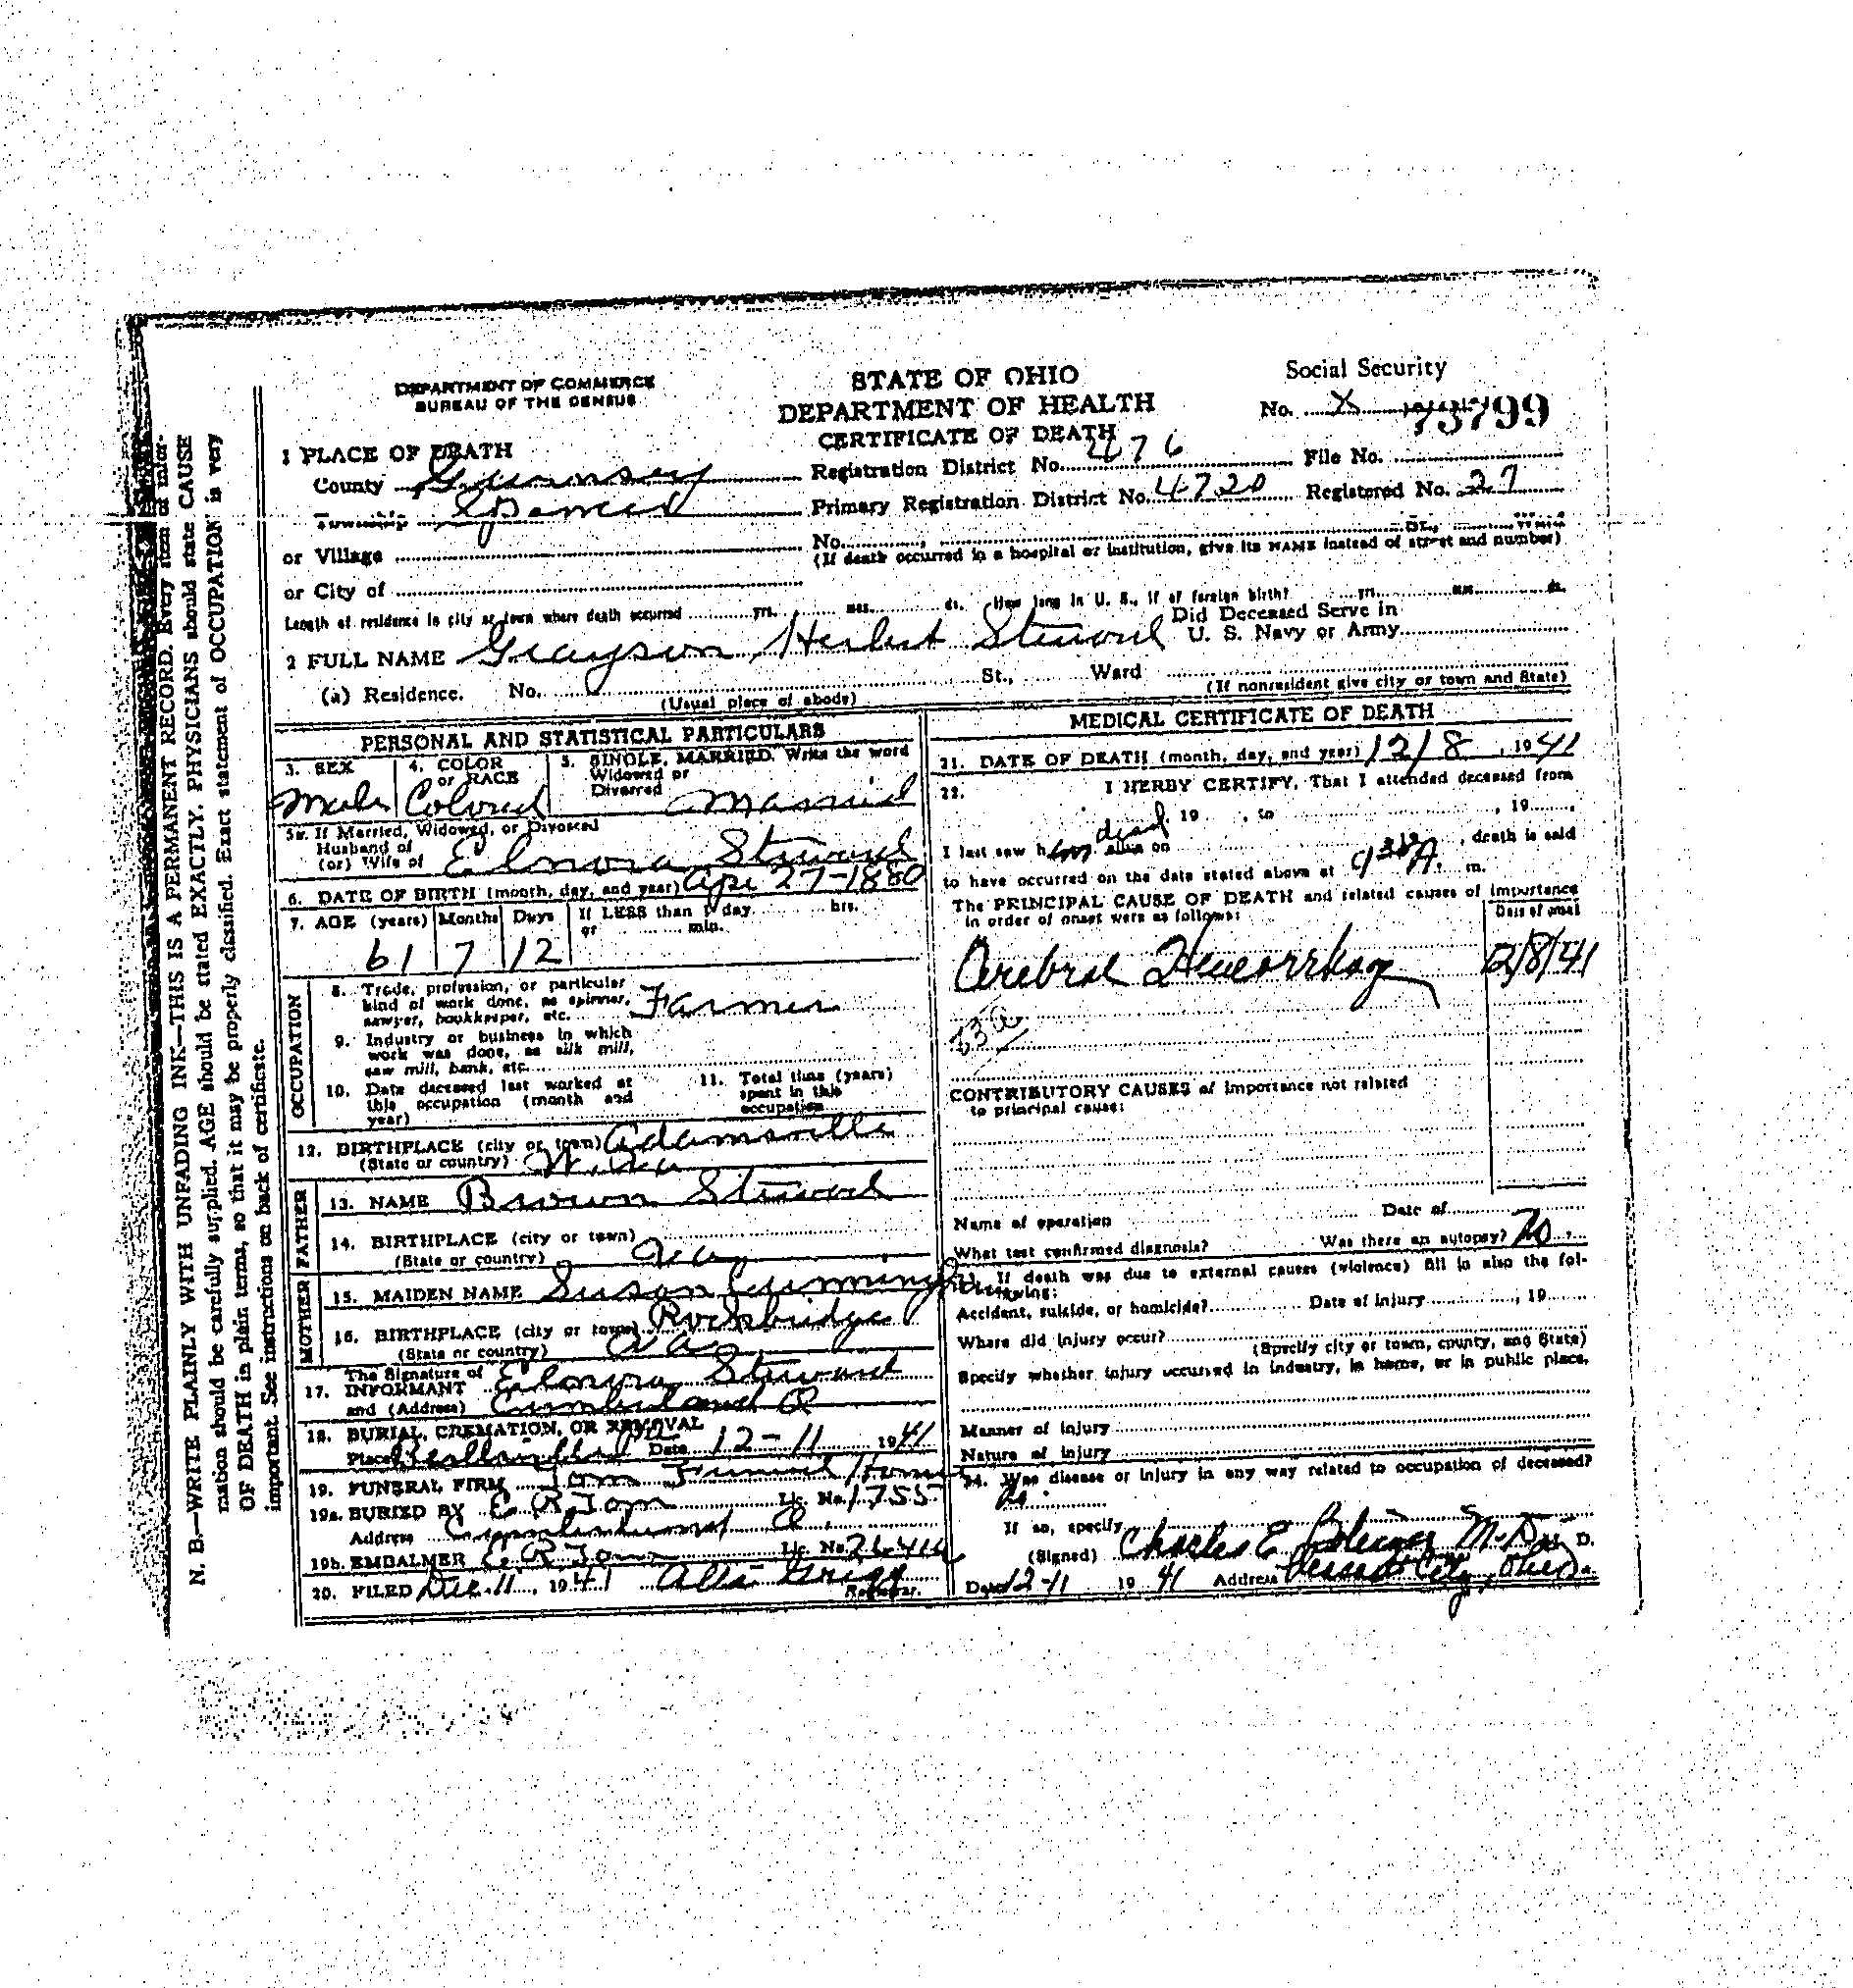 DEPARTMENT OF COMMERCE
BUREAU OF THE CENSUS
STATE OF OHIO
DEPARTMENT OF HEALTH
CERTIFICATE OF DEATH
Social Security
No. X
73799
1 PLACE OF DEATH
County Guernsey
Township Spencer
or Village
or City of
Registration District No. 476 File No.
Primary Registration District No. 4720 Registered No. 27
No. St., Ward
(If death occurred in a hospital or institution, give its NAME instead of street and number)
Length of residence in city or town where death occurred yrs. mos. ds. How long in U. S., if of foreign birth? yrs. mos. ds.
2 FULL NAME Grayson Herbert Steward
Did Deceased Serve in
U. S. Navy or Army
(a) Residence. No. St., Ward
(Usual place of abode) (If nonresident give city or town and State)
PERSONAL AND STATISTICAL PARTICULARS
3. SEX Male
4. COLOR or RACE Colored
5. SINGLE, MARRIED, Write the word
Widowed or
Divorced Married
5a. If Married, Widowed, or Divorced
Husband of
(or) Wife of Elnora Steward
6. DATE OF BIRTH (month, day, and year) Apr 27-1880
7. AGE (years) Months Days If LESS than 1 day hrs.
or min.
61 7 12
OCCUPATION
8. Trade, profession, or particular
kind of work done, as spinner,
sawyer, bookkeeper, etc. Farmer
9. Industry or business in which
work was done, as silk mill,
saw mill, bank, etc.
10. Date deceased last worked at
this occupation (month and
year)
11. Total time (years)
spent in this
occupation
12. BIRTHPLACE (city or town) Adamsville
(State or country) W. Va
FATHER
13. NAME Brown Steward
14. BIRTHPLACE (city or town)
(State or country) Va
MOTHER
15. MAIDEN NAME Susan Cunningham
16. BIRTHPLACE (city or town) Rockbridge
(State or country) Va
The Signature of
17. INFORMANT Elnora Steward
and (Address) Cumberland O
18. BURIAL, CREMATION, OR REMOVAL
Place Date 12-11 1941
19. FUNERAL FIRM Tom Funeral Home
19a. BURIED BY E R Tom Lic. No. 1755
Address Cumberland O.
19b. EMBALMER E R Tom Lic. No.
20. FILED Dec. 11, 1941
Registrar.
MEDICAL CERTIFICATE OF DEATH
21. DATE OF DEATH (month, day, and year) 12/8, 1941
22. I HERBY CERTIFY, That I attended deceased from
19 , to , 19
I last saw him alive on dead , death is said
to have occurred on the date stated above at 9 30 A. m.
The PRINCIPAL CAUSE OF DEATH and related causes of importance
in order of onset were as follows: Date of onset
Cerebral Hemorrhag 12/8/41
CONTRIBUTORY CAUSES of importance not related
to principal cause:
Name of operation Date of
What test confirmed diagnosis? Was there an autopsy? No
23. If death was due to external causes (violence) fill in also the following:
Accident, suicide, or homicide? Date of injury , 19
Where did injury occur?
(Specify city or town, county, and State)
Specify whether injury occurred in industry, in home, or in public place.
Manner of injury
Nature of injury
24. Was disease or injury in any way related to occupation of deceased?
No
If so, specify
(Signed) Charles E M. D.
Date 12-11 19 41 Address Pleasant City, Ohio.
N. B.—WRITE PLAINLY WITH UNFADING INK—THIS IS A PERMANENT RECORD. Every item of infor-
mation should be carefully supplied. AGE should be stated EXACTLY. PHYSICIANS should state CAUSE
OF DEATH in plain terms, so that it may be properly classified. Exact statement of OCCUPATION is very
important. See instructions on back of certificate.